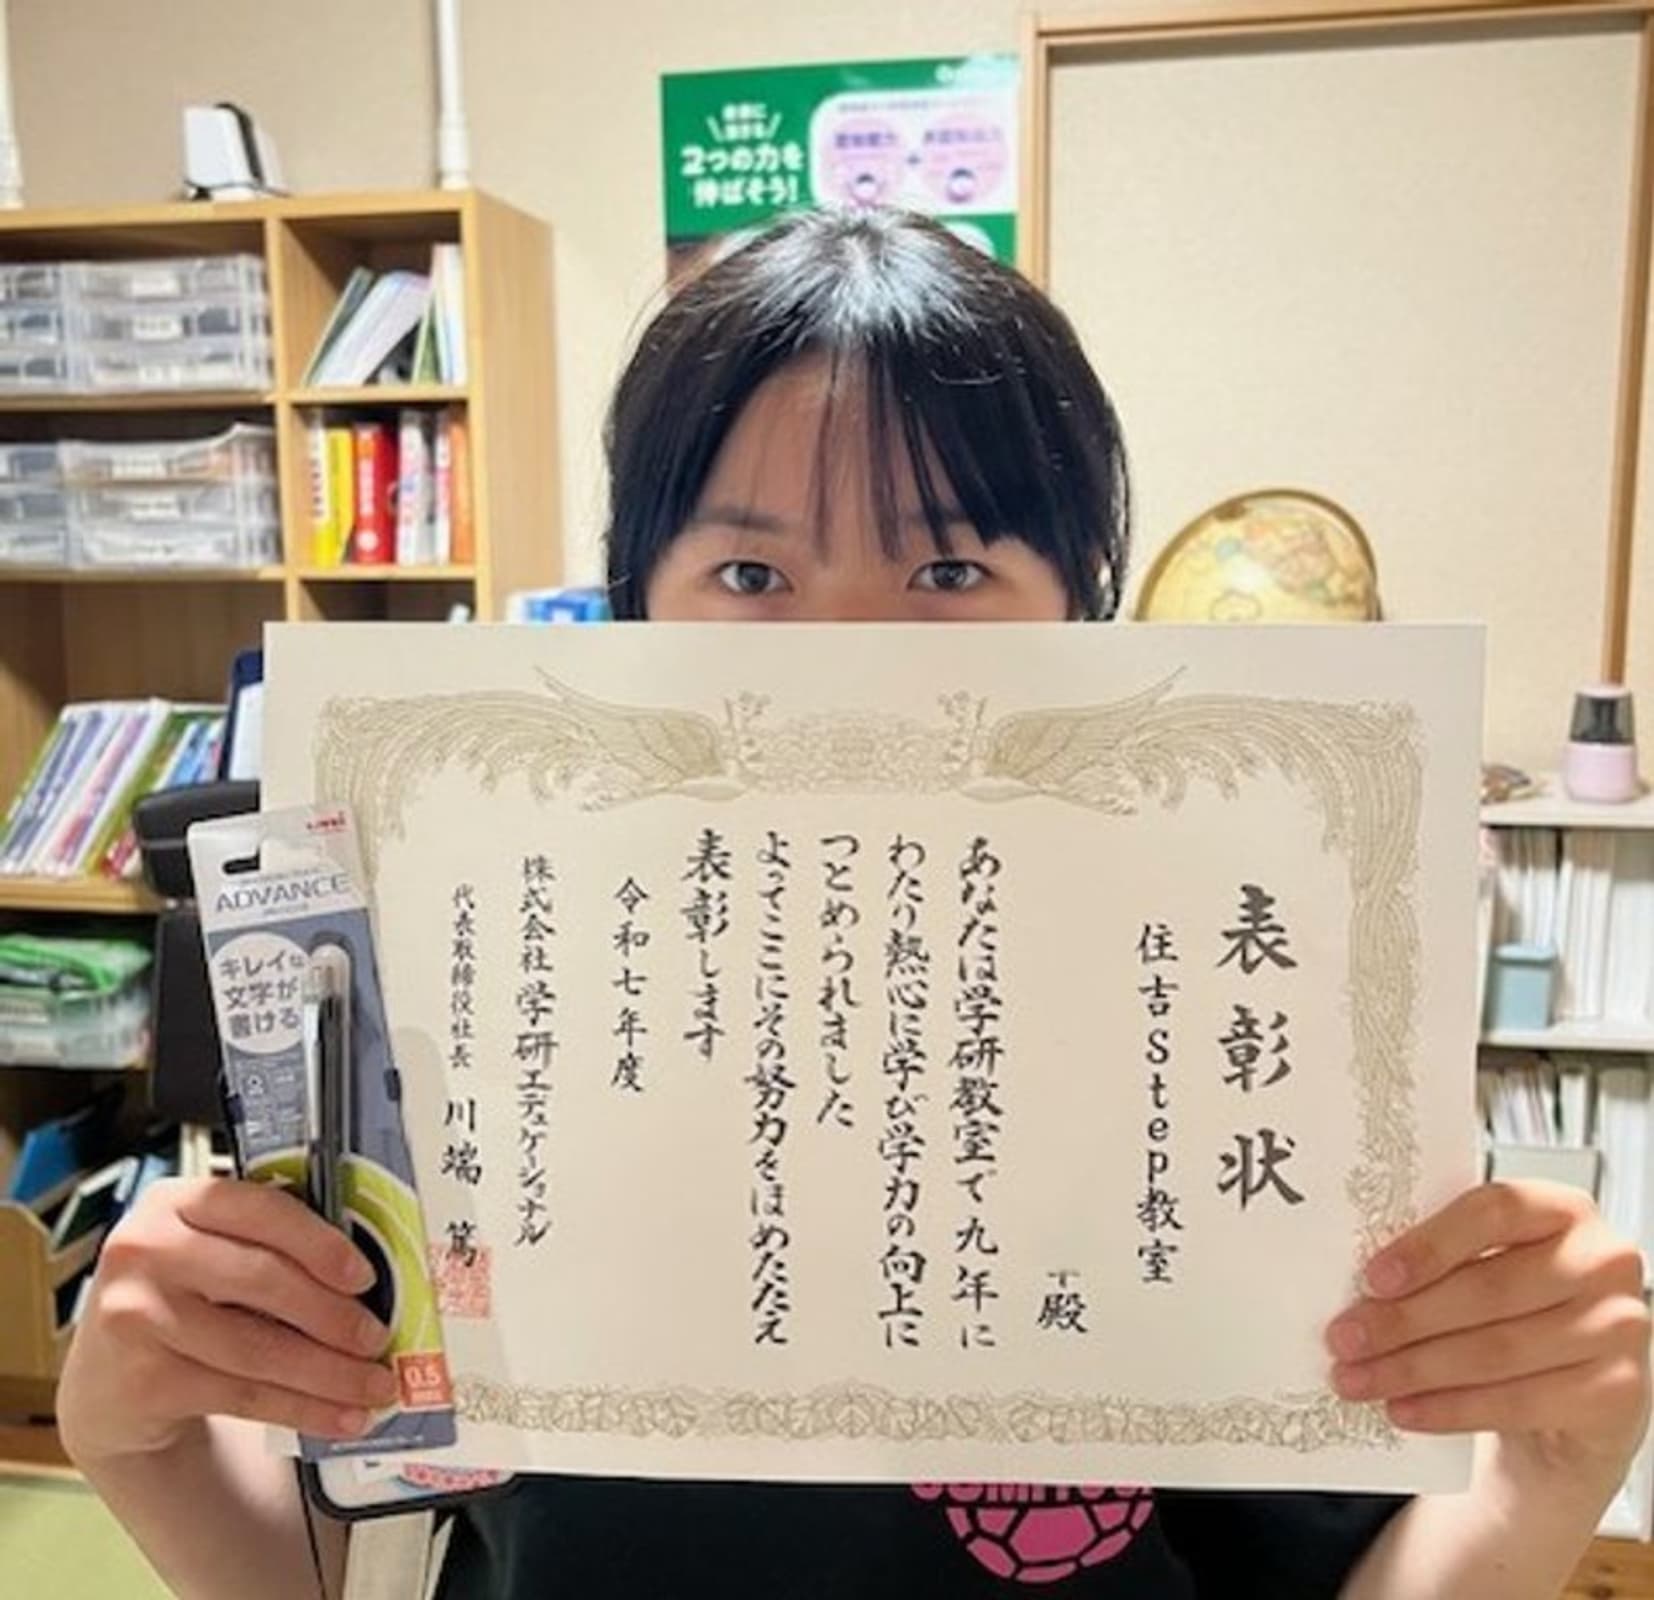 2つの力を
伸ばそう!
表彰状
住吉Step教室
殿
あなたは学研教室で九年に
わたり熱心に学び学力の向上に
つとめられました
よってここにその努力をほめたたえ
表彰します
令和七年度
株式会社学研エデュケーショナル
代表取締役社長 川端 篤
uni
ADVANCE
キレイな
文字が
書ける
0.5